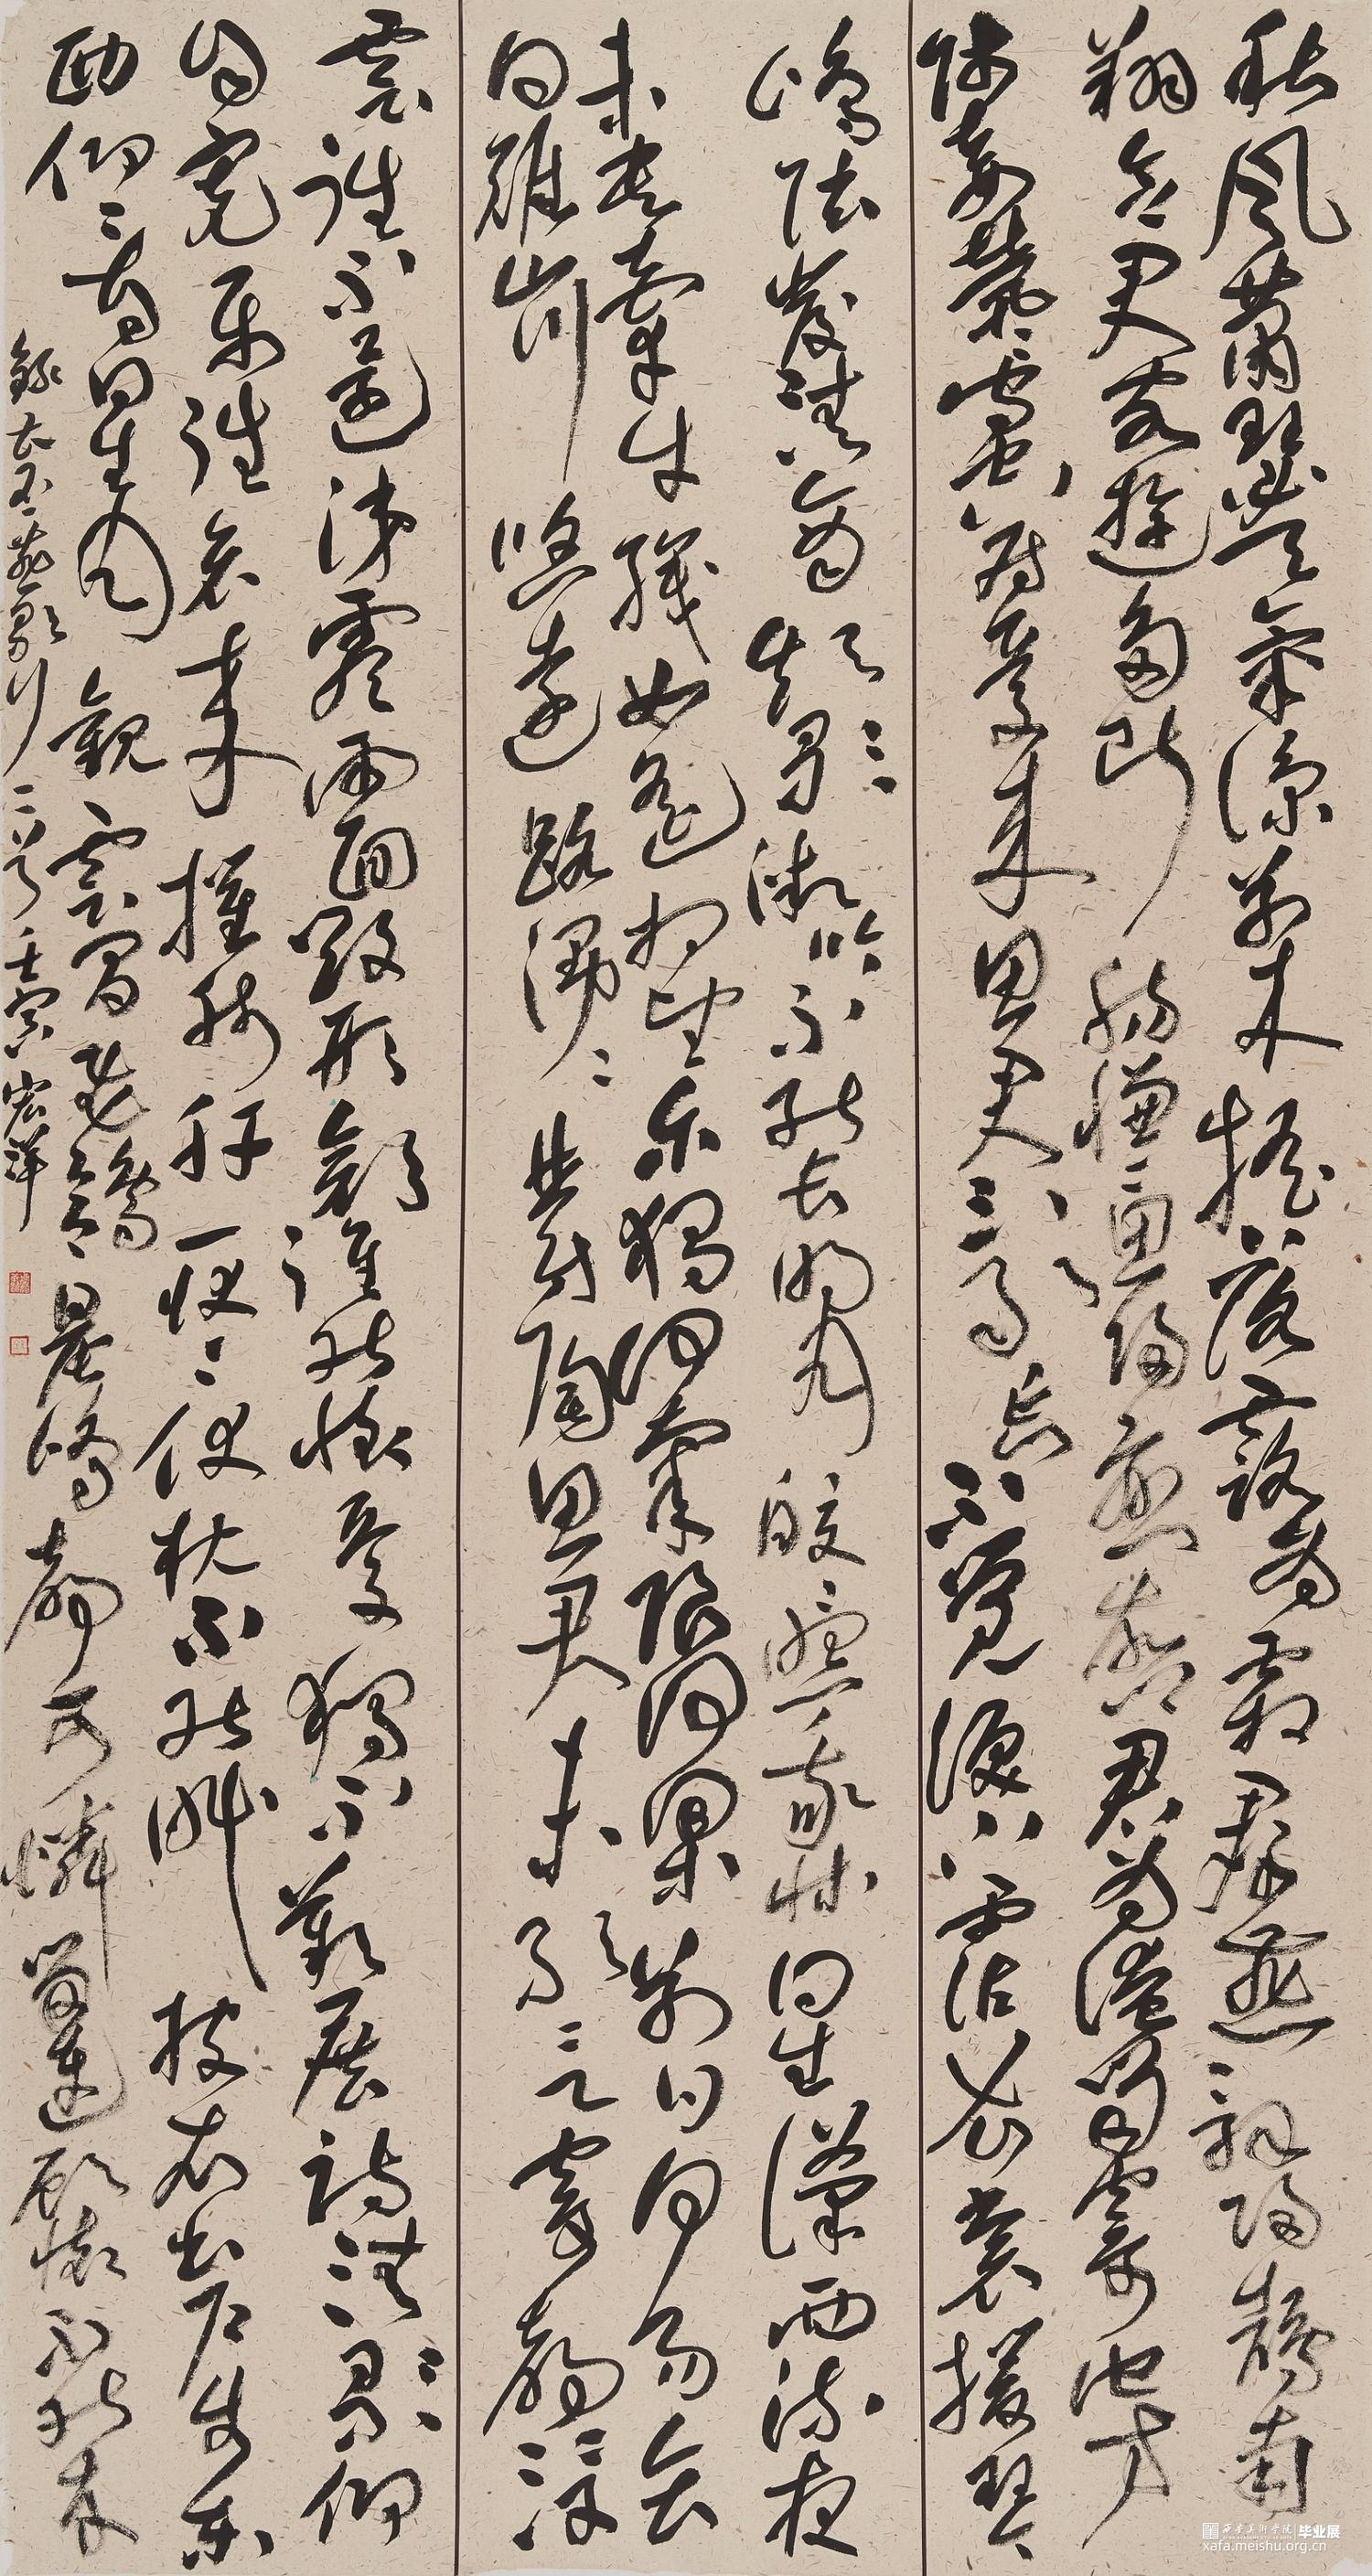 秋風蕭瑟天氣涼草木搖落露為霜群燕辭歸鵠南
翔念君客遊多思腸慊慊思歸戀故鄉君為淹留寄他方
賤妾煢煢守空房憂來思君不敢忘不覺淚下霑衣裳援琴
鳴弦發清商短歌微吟不能長明月皎皎照我床星漢西流夜
未央牽牛織女遙相望爾獨何辜限河梁別日何易會
日難山川悠遠路漫漫鬱陶思君未敢言寄聲浮
雲往不還涕零雨面毀形顏誰能懷憂獨不歎展詩清歌聊
自寬樂往哀來摧肺肝耿耿伏枕不能眠披衣出戶步東
西仰看星月觀雲間飛鶬晨鳴聲可憐留連顧懷不能存
錄曹丕燕歌行二首壬寅宏洋
西安美术学院 毕业展
xafa.meishu.org.cn